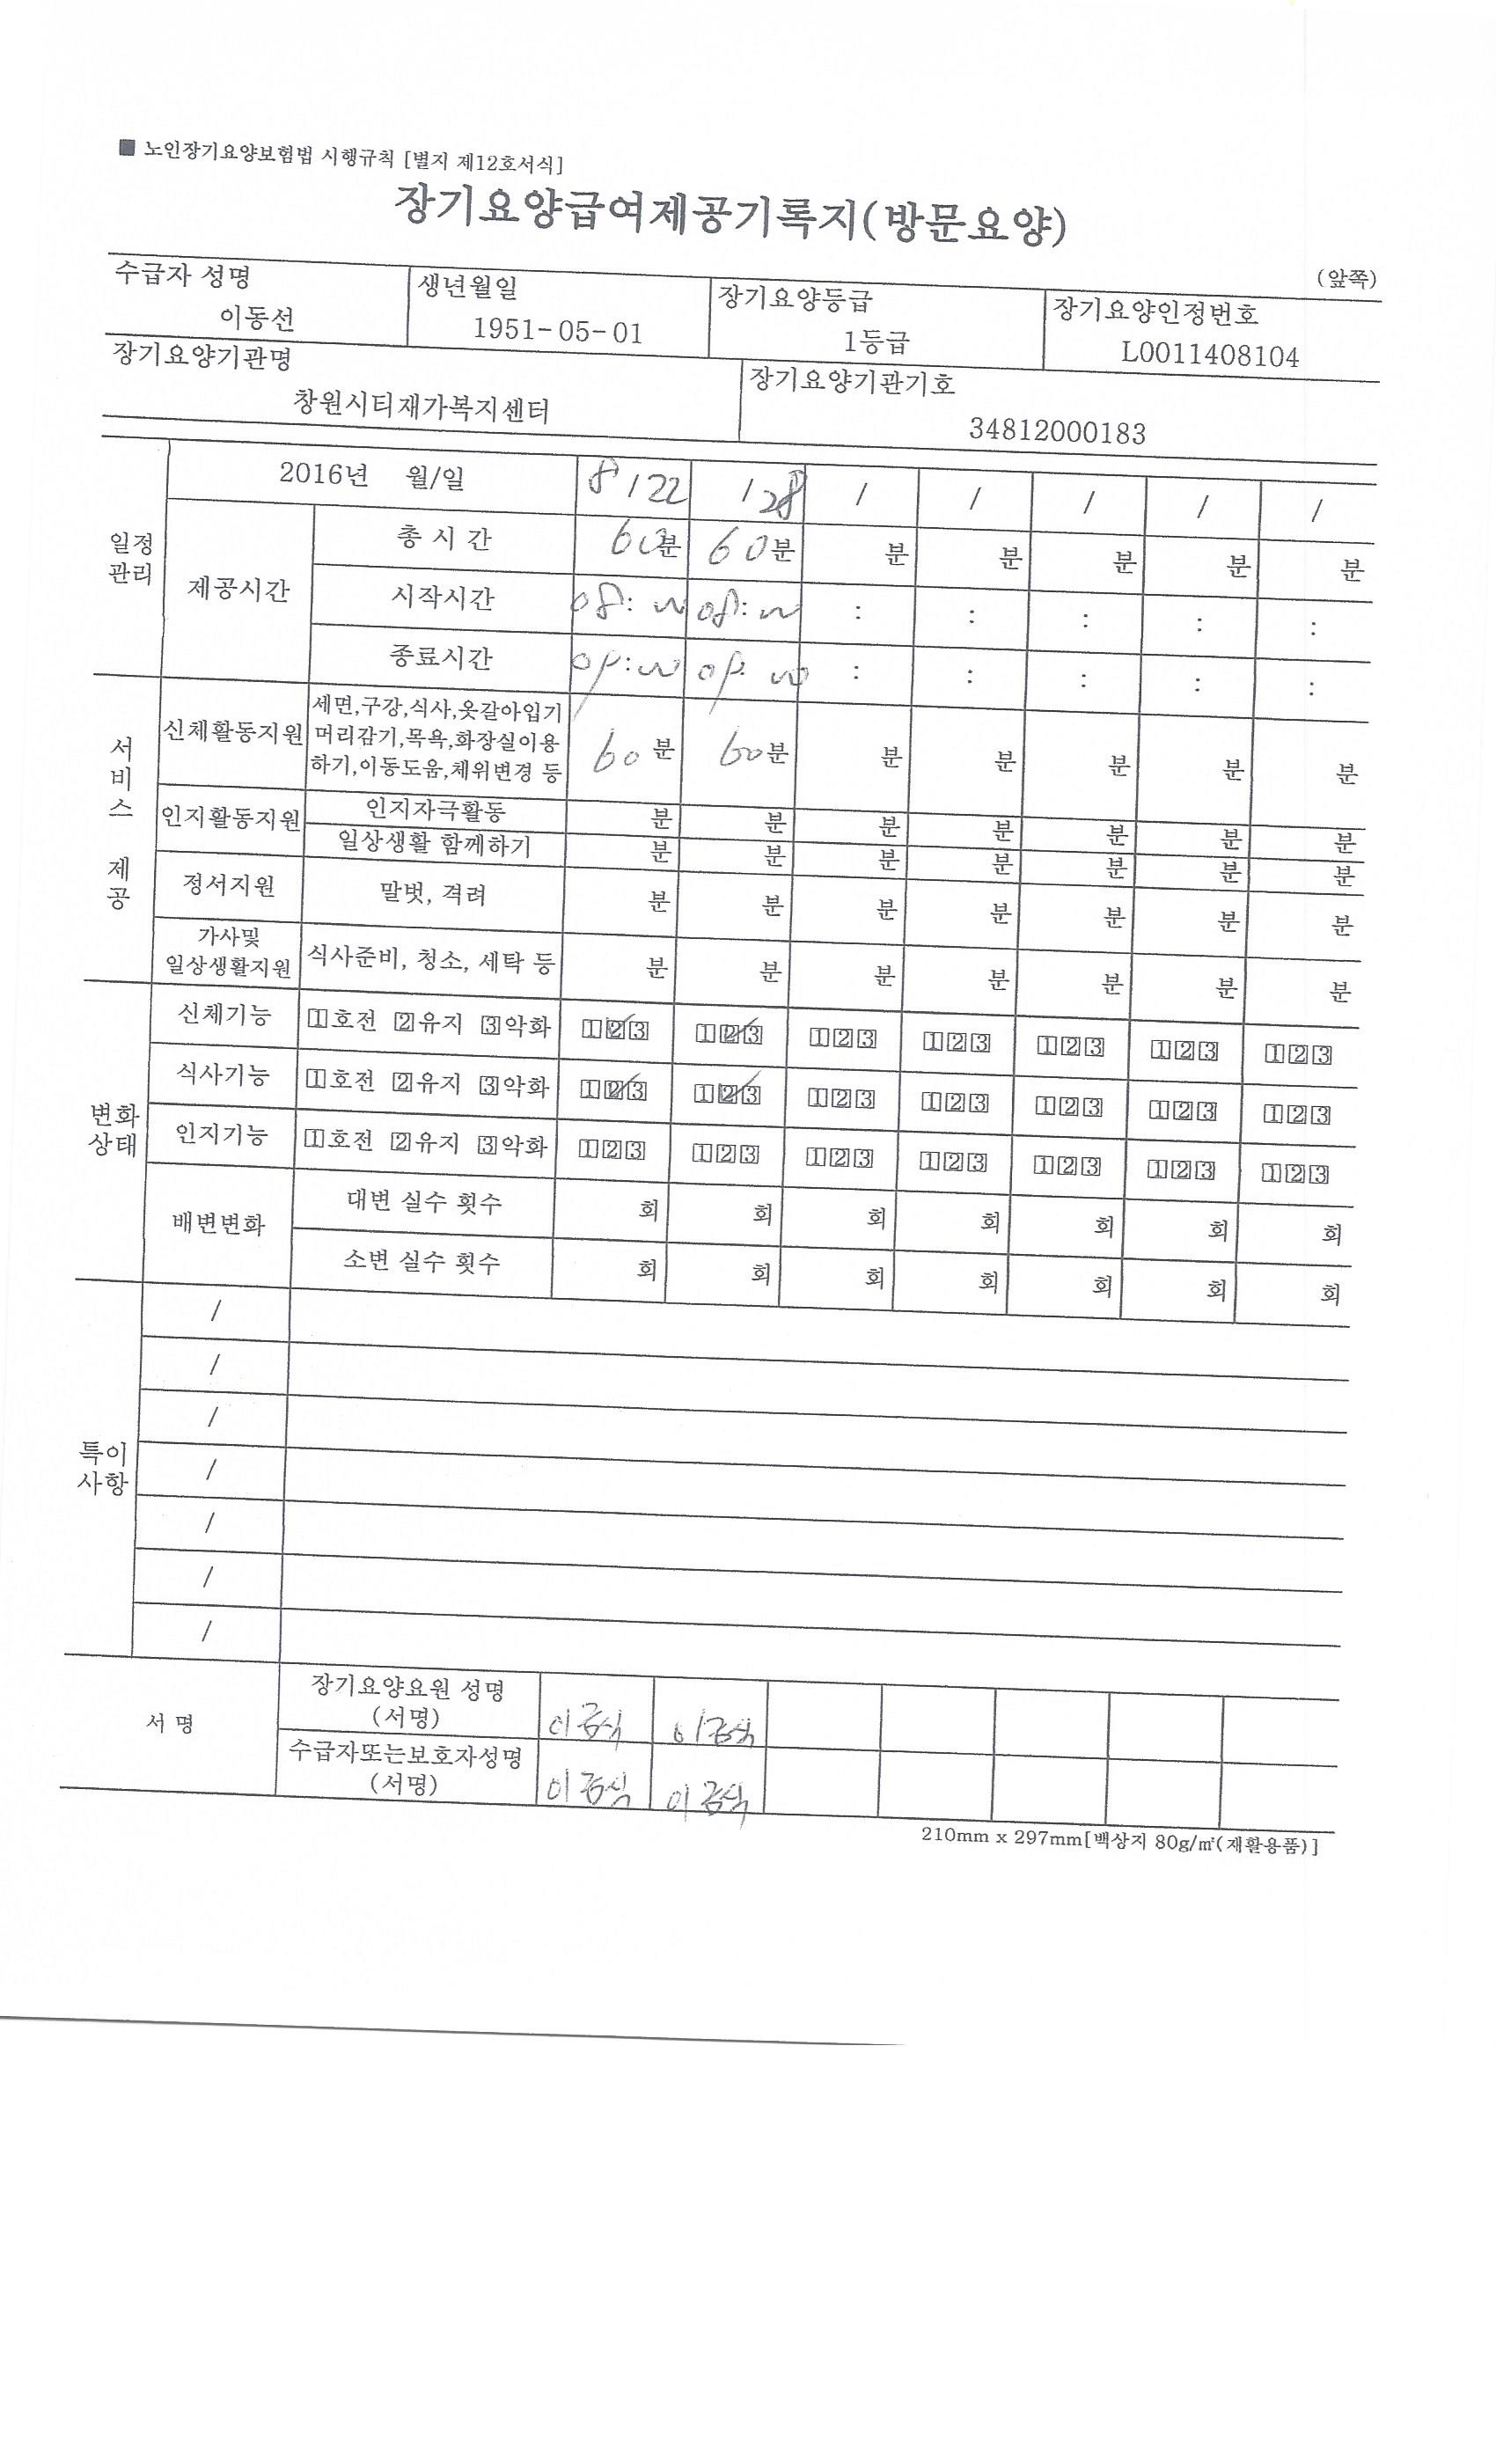 ■ 노인장기요양보험법 시행규칙 [별지 제12호서식]
장기요양급여제공기록지(방문요양)
(앞쪽)
수급자 성명 생년월일 장기요양등급 장기요양인정번호
이동선 1951-05-01 1등급 L0011408104
장기요양기관명 장기요양기관기호
창원시티재가복지센터 34812000183
일정 관리 2016년 월/일 8/22 /28 / / / / /
제공시간 총 시 간 60분 60분 분 분 분 분 분
시작시간 08: 08: : : : : :
종료시간 : : : : : : :
서비스 제공
신체활동지원 세면,구강,식사,옷갈아입기
머리감기,목욕,화장실이용 60분 60분 분 분 분 분 분
하기,이동도움,체위변경 등
인지활동지원 인지자극활동 분 분 분 분 분 분 분
일상생활 함께하기 분 분 분 분 분 분 분
정서지원 말벗, 격려 분 분 분 분 분 분 분
가사및
일상생활지원 식사준비, 청소, 세탁 등 분 분 분 분 분 분 분
변화 상태
신체기능 1호전 2유지 3악화 123 123 123 123 123 123 123
식사기능 1호전 2유지 3악화 123 123 123 123 123 123 123
인지기능 1호전 2유지 3악화 123 123 123 123 123 123 123
배변변화 대변 실수 횟수 회 회 회 회 회 회 회
소변 실수 횟수 회 회 회 회 회 회 회
특이 사항
/
/
/
/
/
/
/
서 명
장기요양요원 성명
(서명) 이금식 이금식
수급자또는보호자성명
(서명) 이금식 이금식
210mm x 297mm[백상지 80g/㎡(재활용품)]